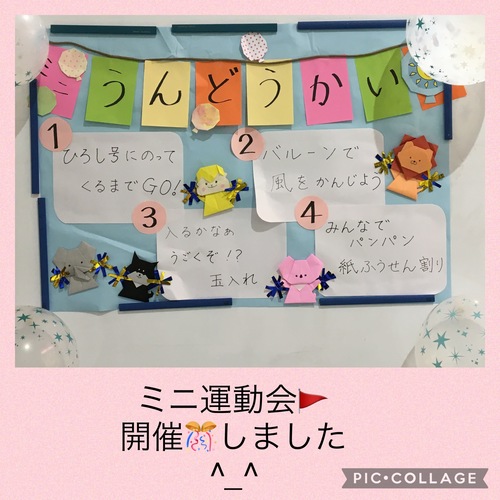 ミニうんどうかい
1
ひろし号にのって
くるまでGO!
2
バルーンで
風をかんじよう
3
入るかなぁ
うごくぞ!?
玉入れ
4
みんなで
パンパン
紙ふうせん割り
ミニ運動会🚩
開催🎊しました
^_^
PIC•COLLAGE